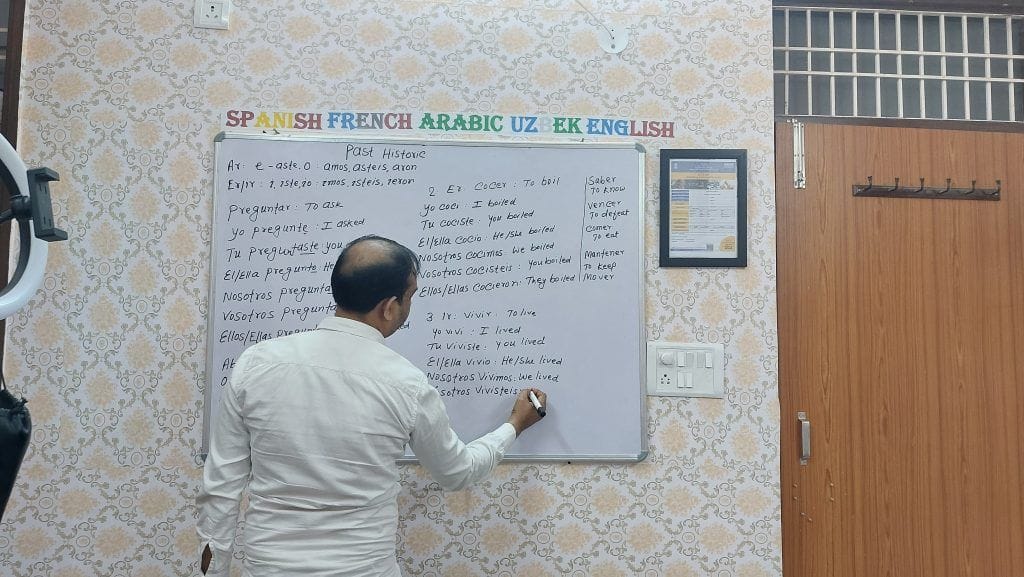 SPANISH FRENCH ARABIC UZBEK ENGLISH
Past Historic
Ar: e - aste. O : amos, asteis, aron
Er/Ir : 1, iste, io : imos, isteis, ieron
Preguntar: To ask
yo pregunte : I asked
Tu preguntaste you
El/Ella pregunto: He
Nosotros pregunta
Vosotros pregunta
Ellos/Ellas
2 Er. Cocer : To boil
yo coci : I boiled
Tu cociste : you boiled
El/Ella cocio : He/She boiled
Nosotros cocimos : we boiled
Vosotros cocisteis : you boiled
Ellos/Ellas cocieron: They boiled
3 Ir: Vivir : To live
yo vivi : I lived
Tu viviste : you lived
El/Ella vivio : He/She lived
Nosotros Vivimos : we lived
sotros vivisteis
Saber
To know
Vencer
To defeat
Comer
To eat
Mantener
To keep
Mover